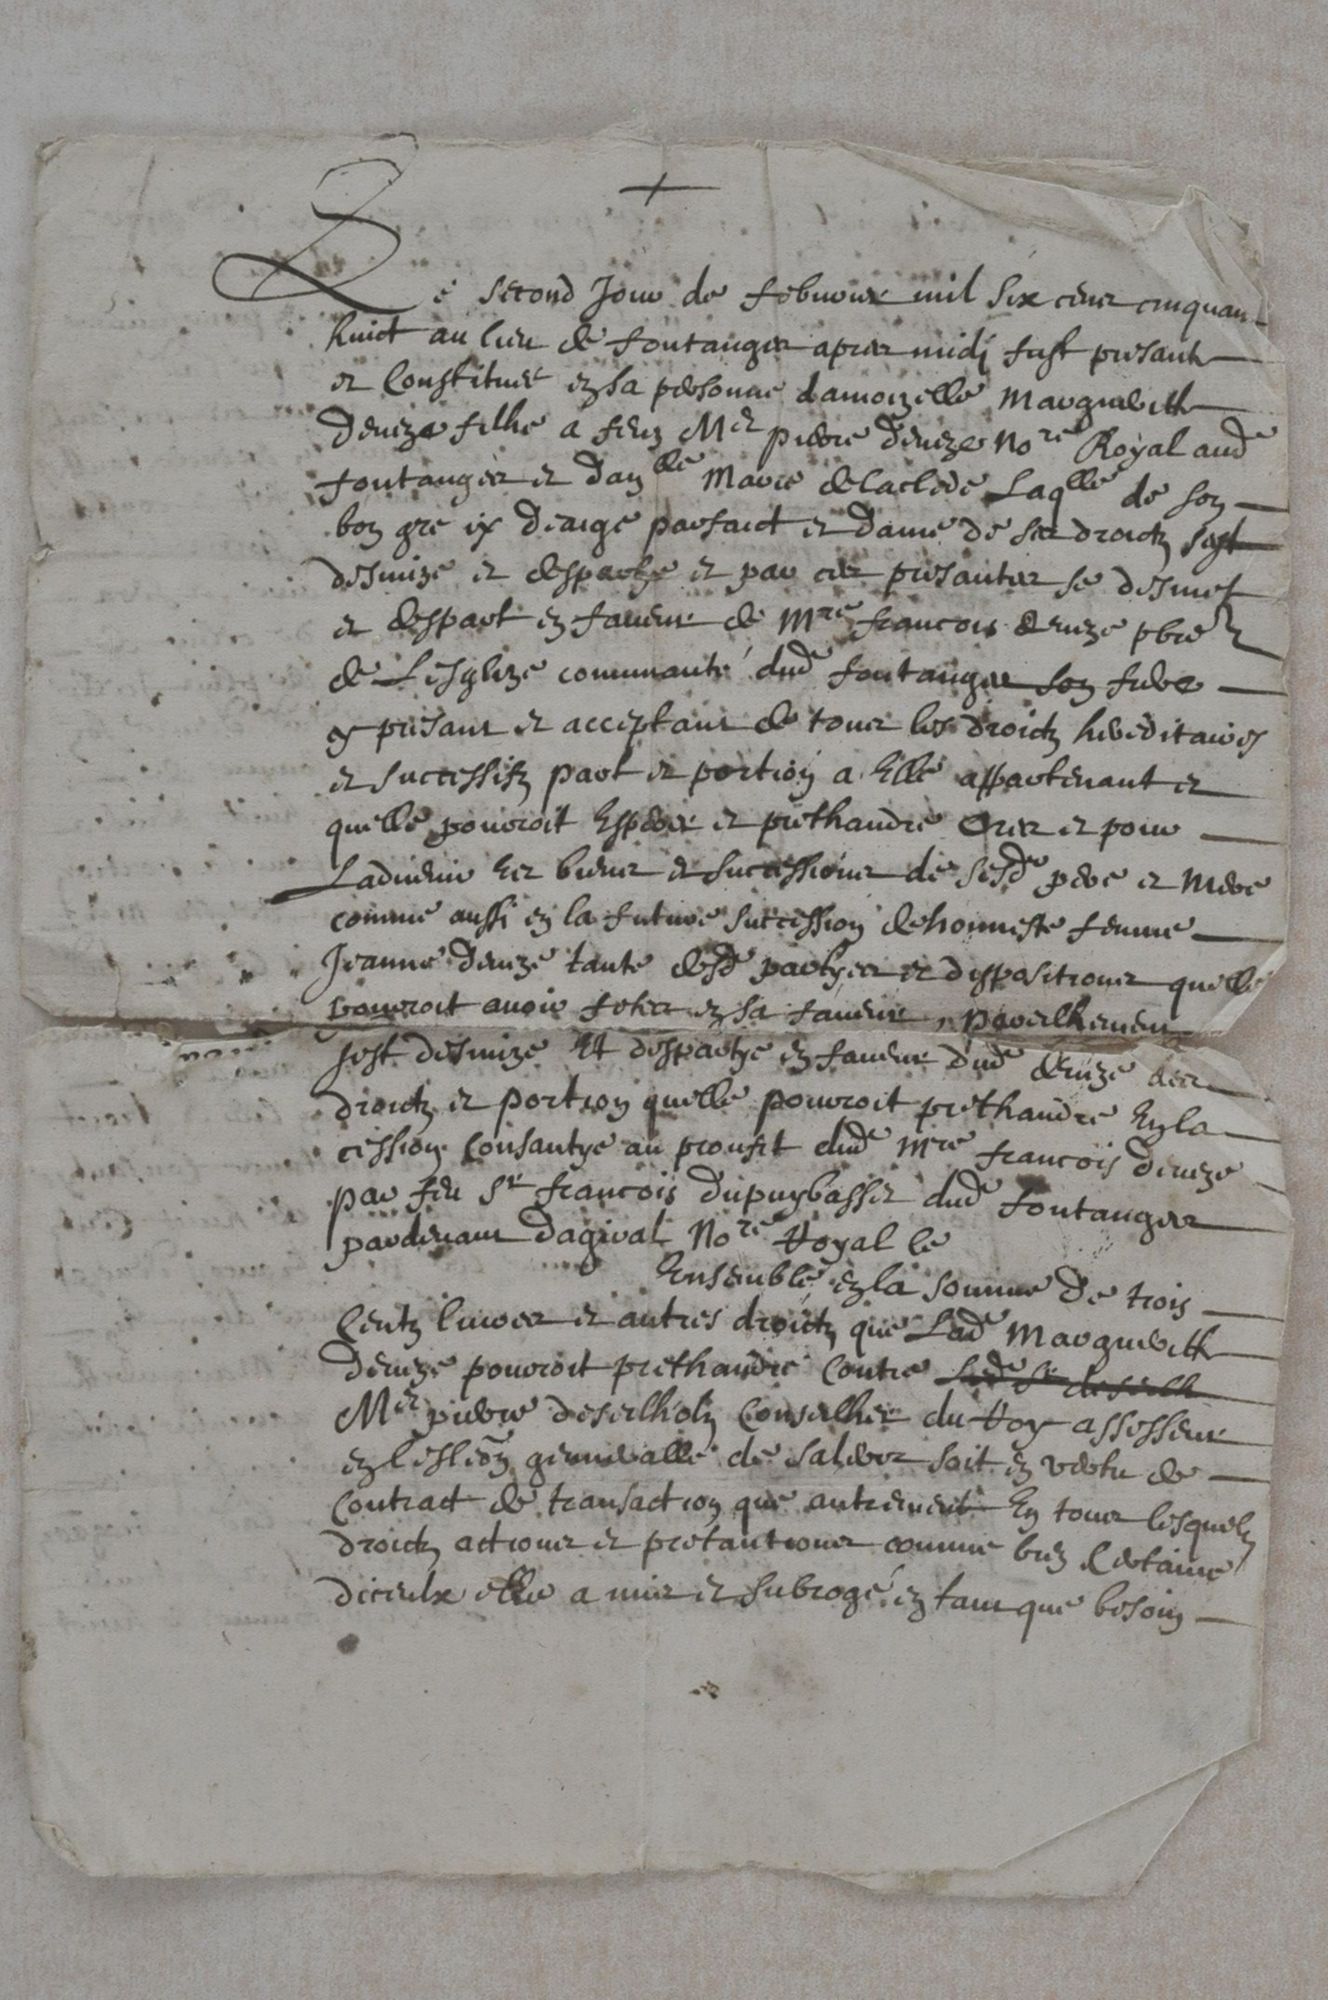 +
Le second Jour de febvrier mil six cens cinquan
huict au lieu de fontanges apres midj fust presante
et Constituée en sa persone damoizelle Marguerithe
deveze filhe a feuz Mes pierre deveze Nore Royal aude
fontanges et damlle Marie delaclede Laqlle de son
bon gre et deaige parfaict et dame de ses droictz sest
desmize et despartye et par ces presantes se desmet
et despart en faveur de Mre francois deveze pbre
de Lesglize communauté dude fontanges son frere
presant et acceptant de tous les droictz hereditaires
et successifz part et portion a Elle appartenant et
quelle pouvroit Esperer et prethandre Ores et pour
Ladvenir Ez biens et successions de sesde pere et Mere
comme aussi en la future succession de honneste femme
Jeanne deveze tante desde partyes et dispositions quelle
pouvroit avoir faites en sa faveur, pareilhement
sest desmize Et despartye en faveur dude deveze des
droictz et portion quelle pouvroit prethandre En la
cession Consantye au proufit dude Mre francois deveze
par feu Sr francois dupuybasset dude fontanges
pardevant dagival Nore Royal le
Ensemble en la somme de trois
Centz livres et autres droictz que Lade Marguerithe
deveze pouvroit prethandre Contre
Mes pierre deseilholz Conseilher du Roy assesseur
en leslon generalle de Salers soit en vertu de
Contract de transaction que autrement En tous lesquelz
droictz actions et pretantions comme bien Certaine
diceulx elle a mis et subrogé en tant que besoin